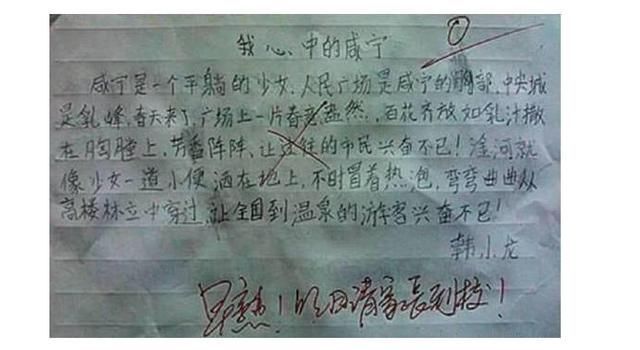 我心中的咸宁
咸宁是一个平躺的少女,人民广场是咸宁的胸部,中央城
是乳峰,春天来了,广场上一片春意盎然,百花齐放如乳汁撒
在胸膛上,芳香阵阵,让过往的市民兴奋不已!淦河就
像少女一道小便洒在地上,不时冒着热泡,弯弯曲曲从
高楼林立中穿过,让全国到温泉的游客兴奋不已!
韩小龙
早熟!明日请家长到校!